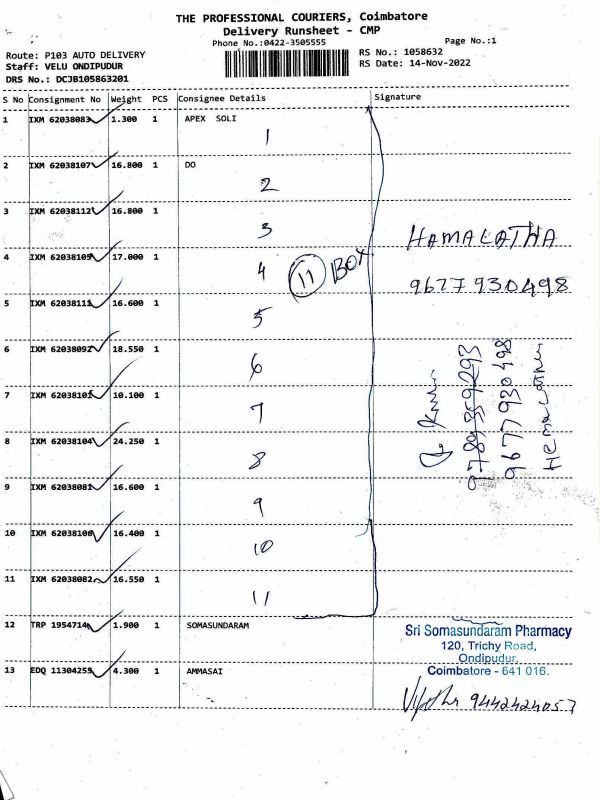 THE PROFESSIONAL COURIERS, Coimbatore
Delivery Runsheet - CMP
Phone No.:0422-3505555
Page No.:1
Route: P103 AUTO DELIVERY
RS No.: 1058632
Staff: VELU ONDIPUDUR
RS Date: 14-Nov-2022
DRS No.: DCJB105863201
S No Consignment No Weight PCS Consignee Details Signature
1 IXM 62038083 1.300 1 APEX SOLI
1
2 IXM 62038107 16.800 1 DO
2
3 IXM 62038112 16.800 1
3
HAMALATHA
4 IXM 62038105 17.000 1
4 11 BOX
9677930498
5 IXM 62038111 16.600 1
5
6 IXM 62038092 18.550 1
6
7 IXM 62038101 10.100 1
7
8 IXM 62038104 24.250 1
8
9 IXM 62038081 16.600 1
9
10 IXM 62038106 16.400 1
10
11 IXM 62038082 16.550 1
11
9789359293
9677930498
Hemalatha
12 TRP 1954714 1.900 1 SOMASUNDARAM
Sri Somasundaram Pharmacy
120, Trichy Road,
Ondipudur,
Coimbatore - 641 016.
13 EDQ 11304255 4.300 1 AMMASAI
9442424057